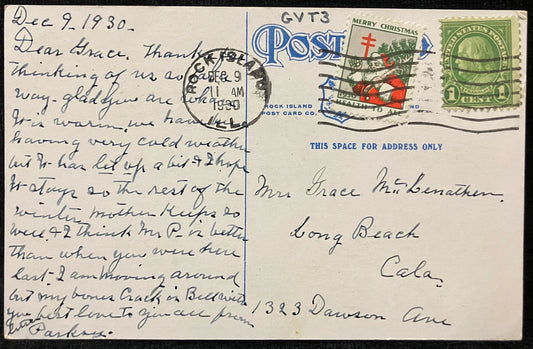 Dec 9, 1930.
Dear Grace. Thanks
thinking of us so far
way - glad you are
it is warm. we have
having very cold weather
but it has let up a bit & I hope
it stays so the rest of the
winter. Mother Keeps so
well & I think Mr P. is better
than when you were here
last. I am moving around
but my bones Crack in
best love to you all from
Parkses
GVT3
POST
ROCK ISLAND
DEC 9
11 AM
1930
ILL.
MERRY CHRISTMAS
HEALTH TO ALL
UNITED STATES POSTAGE
1 CENT 1
ROCK ISLAND
POST CARD CO.
THIS SPACE FOR ADDRESS ONLY
Mrs Grace McClenathen.
Long Beach
Cala.
1323 Dawson Ave